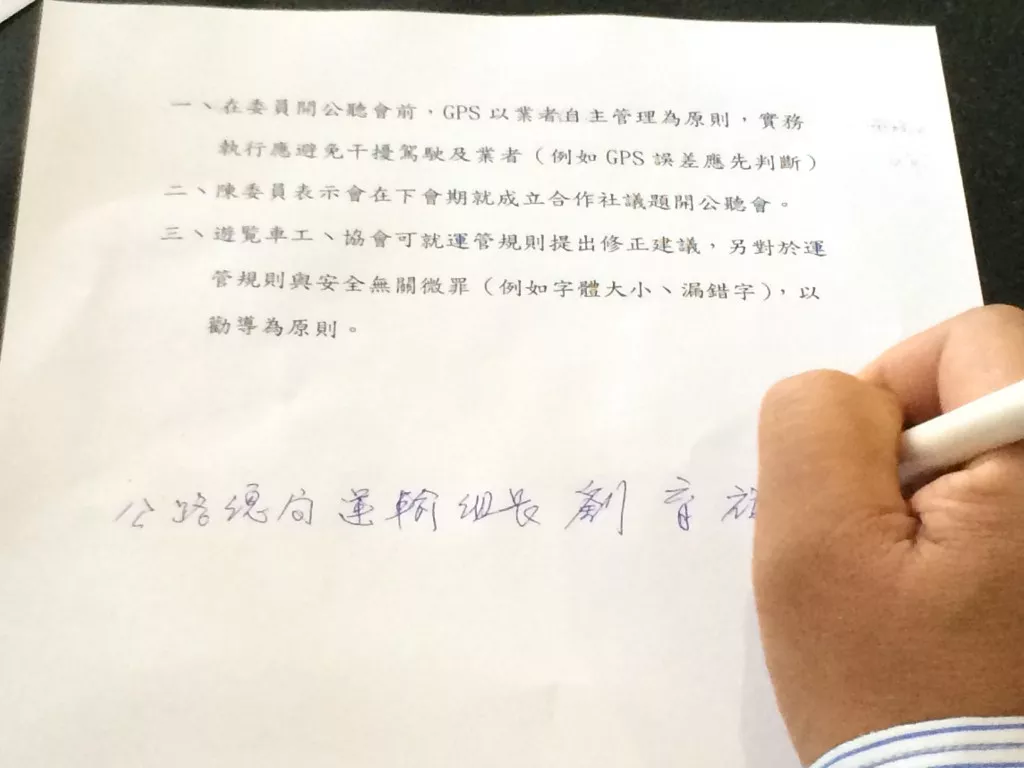 一、在委員開公聽會前，GPS 以業者自主管理為原則，實務
執行應避免干擾駕駛及業者（例如 GPS 誤差應先判斷）
二、陳委員表示會在下會期就成立合作社議題開公聽會。
三、遊覽車工、協會可就運管規則提出修正建議，另對於運
管規則與安全無關微罪（例如字體大小、漏錯字），以
勸導為原則。
公路總局運輸組長 劉育